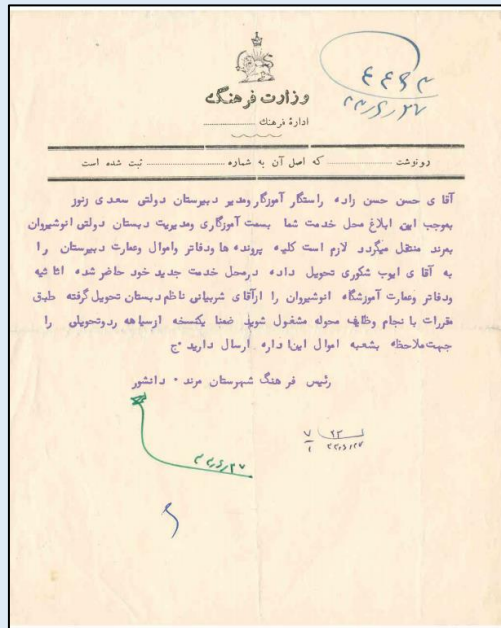 وزارت فرهنگ
ادارهٔ فرهنگ
رونوشت که اصل آن به شماره ثبت شده است
آقای حسن حسن زاده راستگار آموزگار ومدیر دبیرستان دولتی سعدی زنوز
بموجب این ابلاغ محل خدمت شما بسمت آموزگاری ومدیریت دبستان دولتی انوشیروان
بمرند منتقل میگردد لازم است کلیه پرونده ها ودفاتر واموال وعمارت دبیرستان را
به آقای ایوب شکوری تحویل داده درمحل خدمت جدید خود حاضر شده اثاثیه
ودفاتر وعمارت آموزشگاه انوشیروان را ازآقای شربیانی ناظم دبستان تحویل گرفته طبق
مقررات با نجام وظایف محوله مشغول شوید ضمنا یکنسخه ازسیاهه ردوتحویلی را
جهت ملاحظه بشعبه اموال این اداره ارسال دارید ج
رئیس فرهنگ شهرستان مرند · دانشور